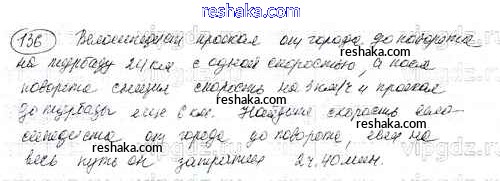 reshak.ru
136 Велосипедист проехал от города до поворота
на турбазу 24 км с одной скоростью, а после
поворота снизил скорость на 3 км/ч и проехал
до турбазы еще 6 км. Найдите скорость вело-
сипедиста от города до поворота, если на
весь путь он затратил 2ч. 40 мин.
reshak.ru
reshak.ru
reshak.ru
reshak.ru